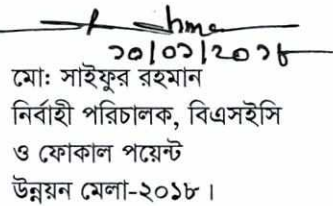 ১০/০১/২০১৮
মো: সাইফুর রহমান
নির্বাহী পরিচালক, বিএসইসি
ও ফোকাল পয়েন্ট
উন্নয়ন মেলা-২০১৮।